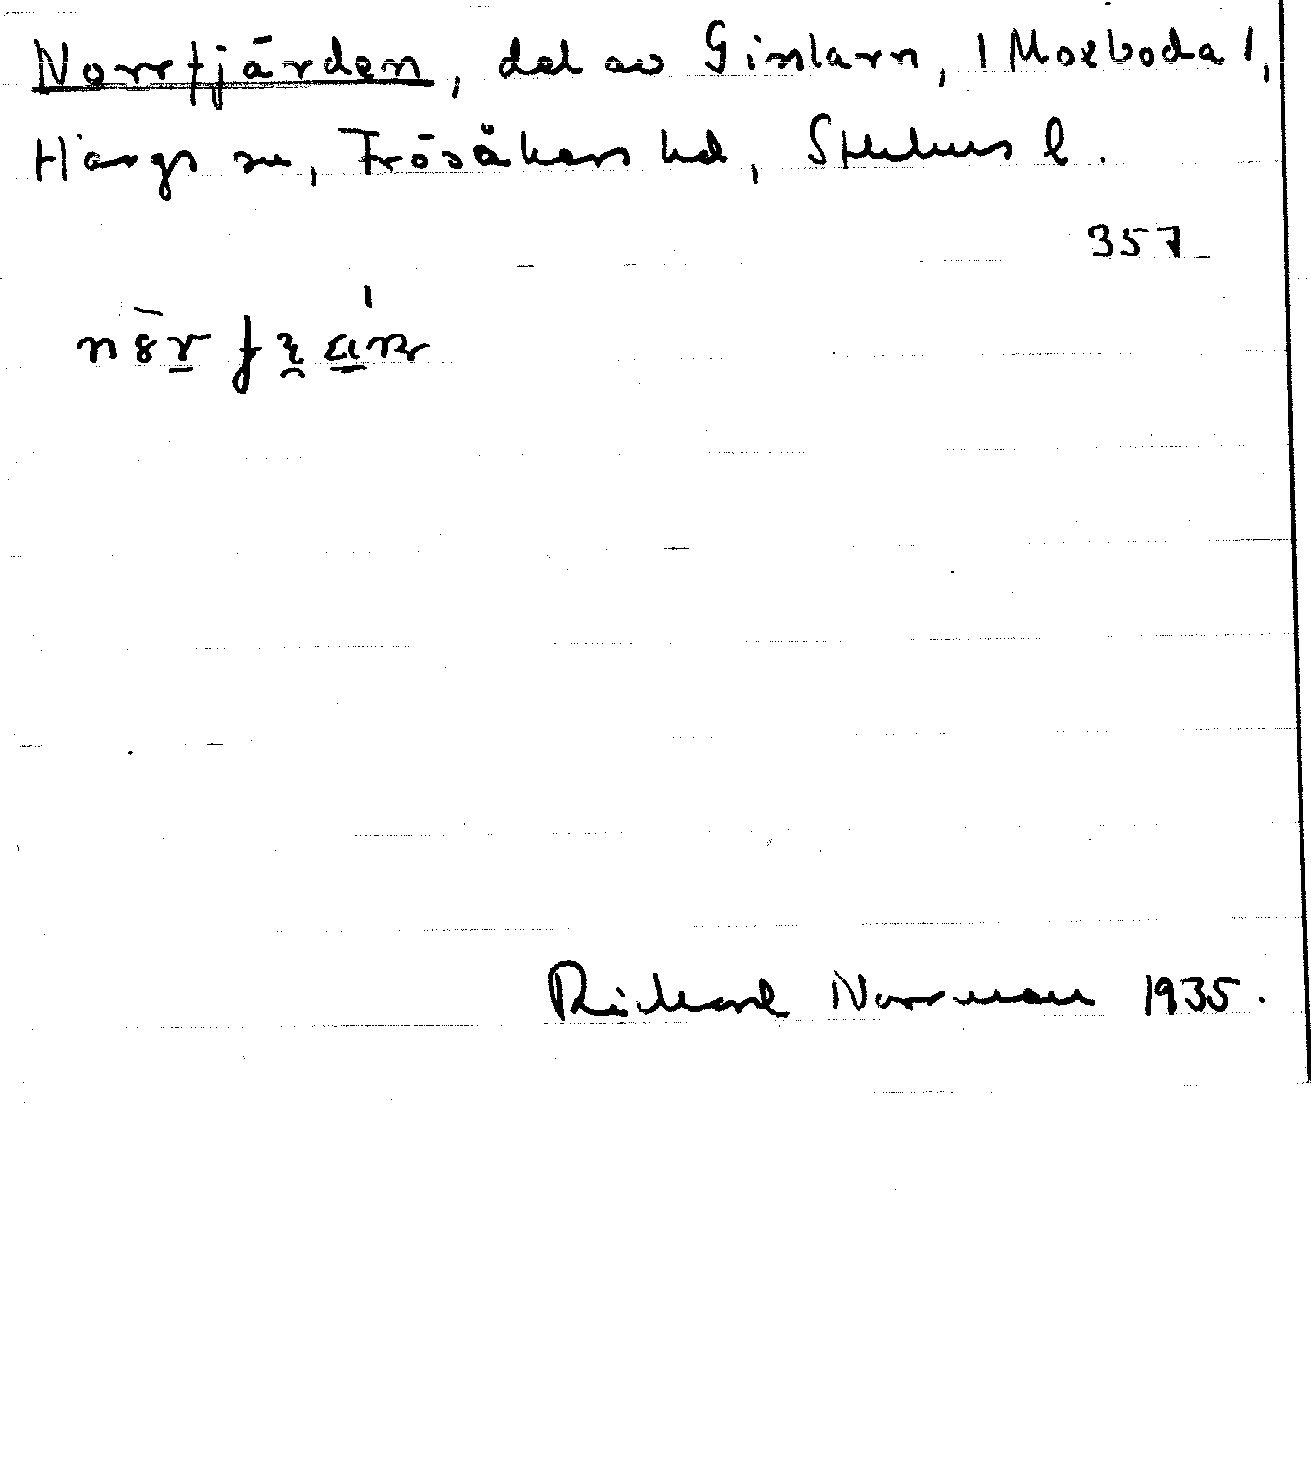 Norrfjärden, del av Gimlarn, /Morboda/,
Hargs sn, Frösåkers hd, Sthlms l.
357
Richard Norrman 1935.